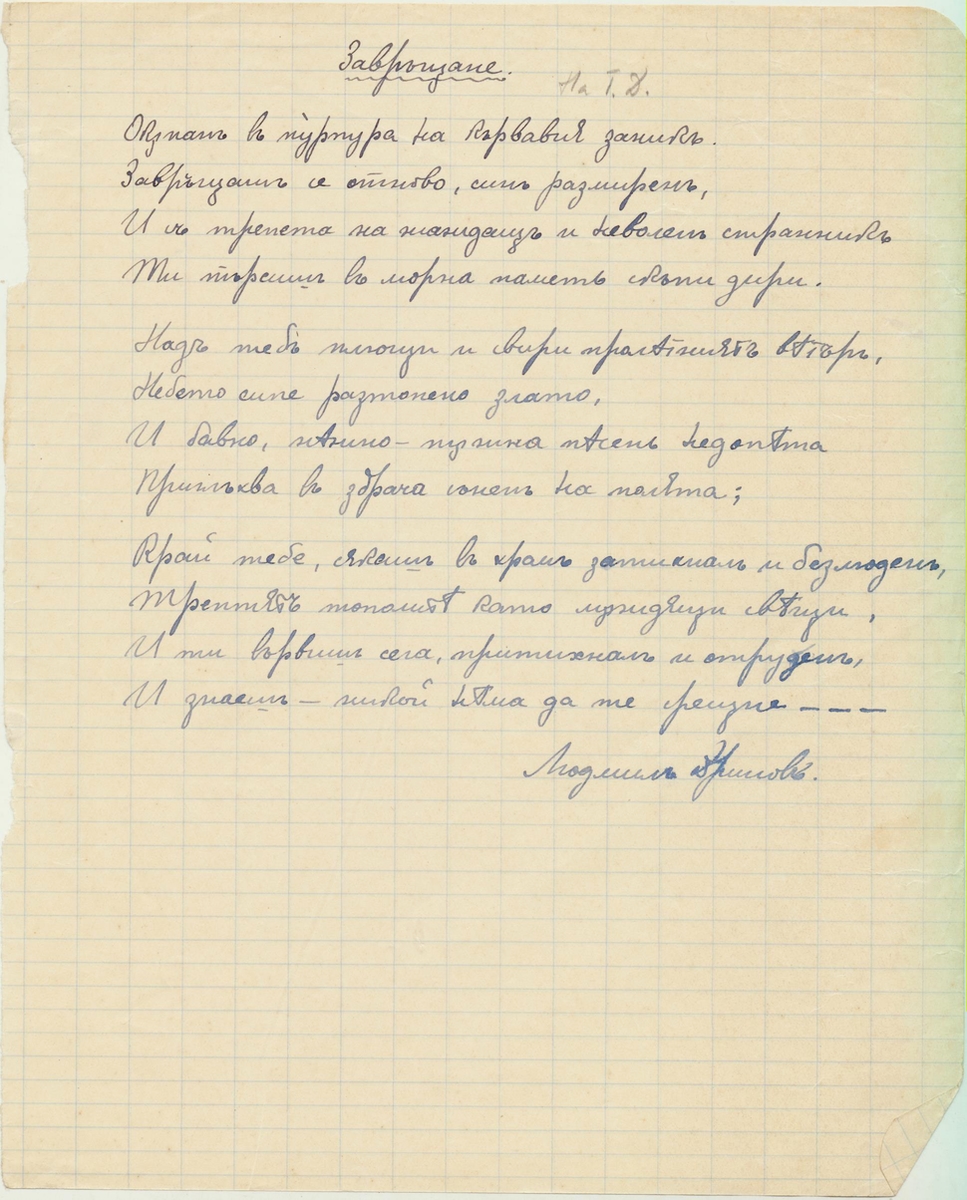 Завръщане.
На Т. Д.
Окѫпанъ въ пурпура на кървавия заникъ.
Завръщашъ се отново, синъ размиренъ,
И съ трепета на жаждащъ и неволенъ странникъ
Ти търсишъ въ морна паметь скѫпи дири.
Надъ тебъ плющи и свири пролѣтниятъ вѣтъръ,
Небето сипе разтопено злато,
И бавно, нѣжно – тѫжна пѣсень недопѣта
въ здрача на полята;
Край тебе, сякашъ въ храмъ затихналъ и безлюденъ,
Трептятъ тополитѣ като мѫждящи свѣщи,
И ти вървишъ сега, притихналъ и отруденъ,
И знаешъ – никой нѣма да те срещне – – –
Людмилъ